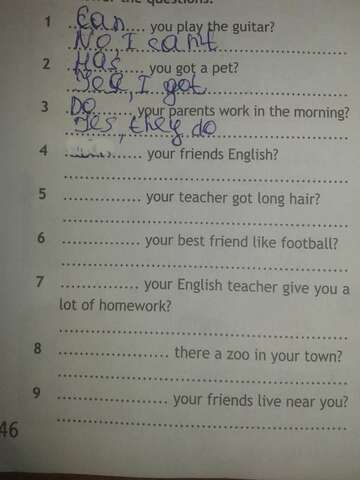 the questions:
1 Can you play the guitar?
No, I can't
2 Has you got a pet?
Yes, I got
3 Do your parents work in the morning?
Yes, they do
4 ............... your friends English?
5 ............... your teacher got long hair?
6 ............... your best friend like football?
7 ............... your English teacher give you a
lot of homework?
8 ............... there a zoo in your town?
9 ............... your friends live near you?
46